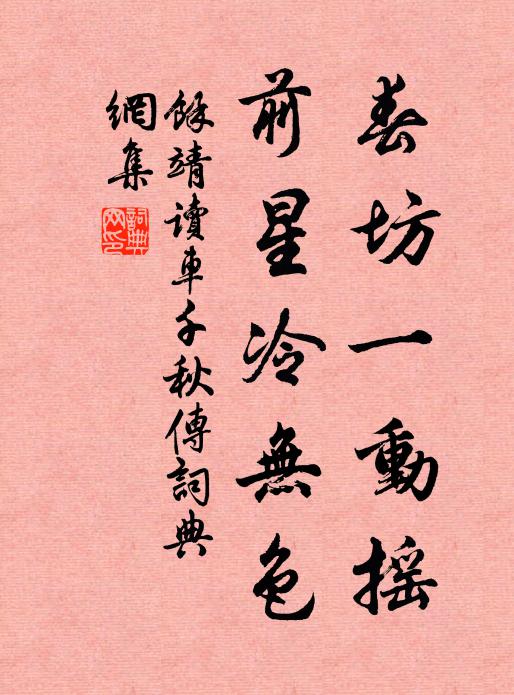 春坊一動搖
前星冷無色
餘靖讀車千秋傳詞典
網集
詞典
网印